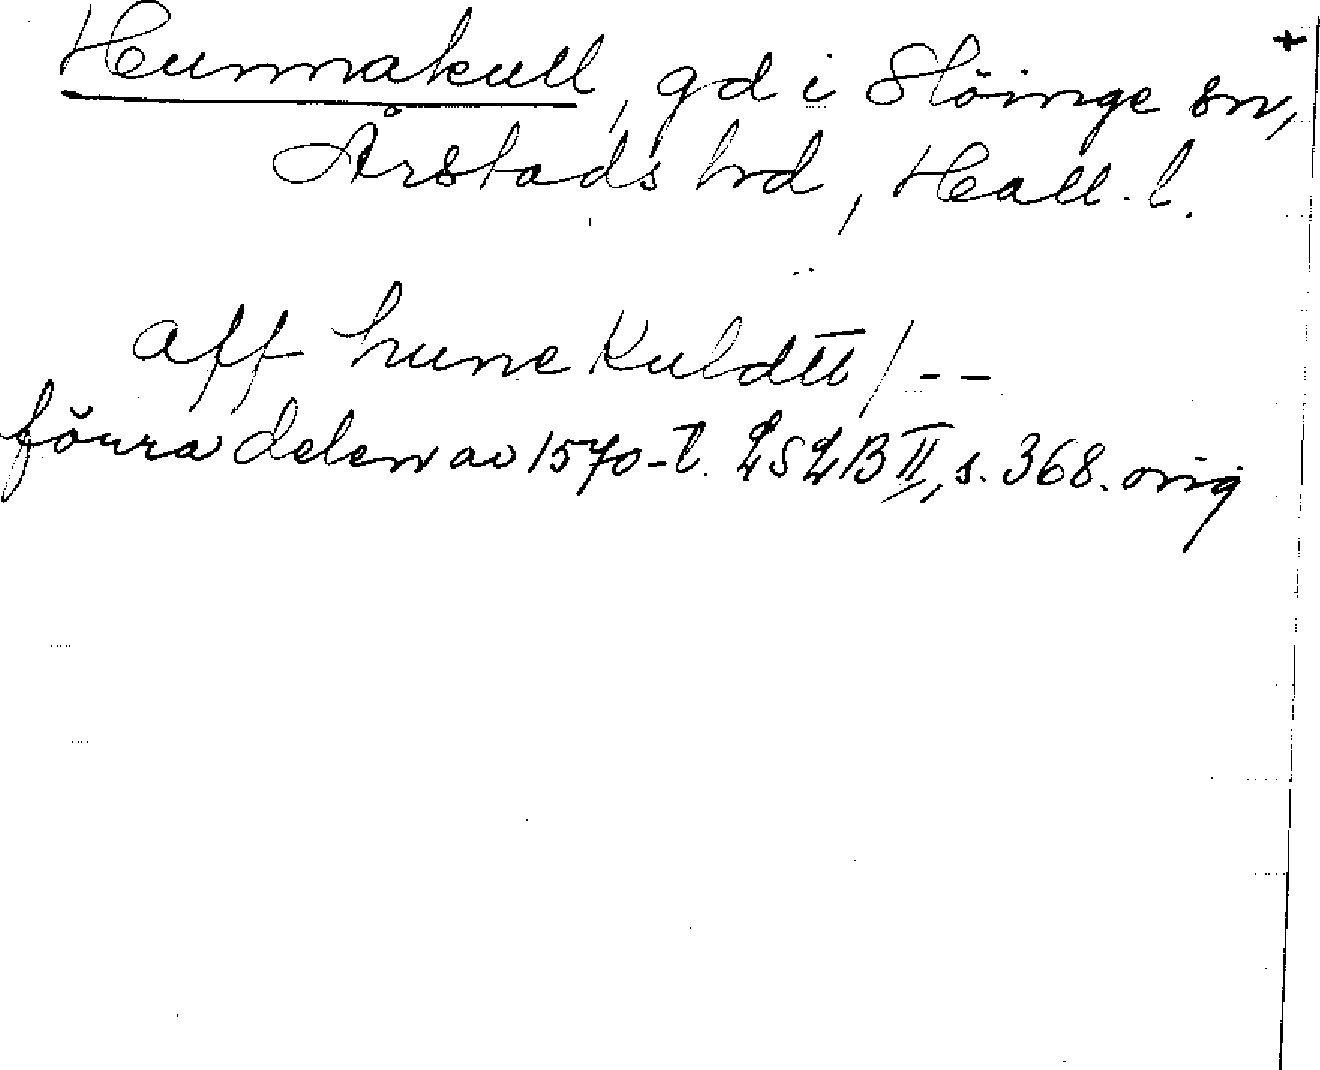 Hunnakull, gd i Slöinge sn, +
Årstads hrd, Hall. l.
aff hune Kuldtt / --
förra delen av 1570-t. LSLB II, s. 368. orig